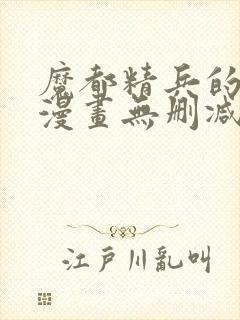 魔都精兵的
漫畫無刪減
江戶川亂叫